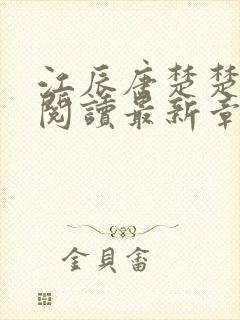 江辰唐楚楚
閱讀最新章
金貝畬